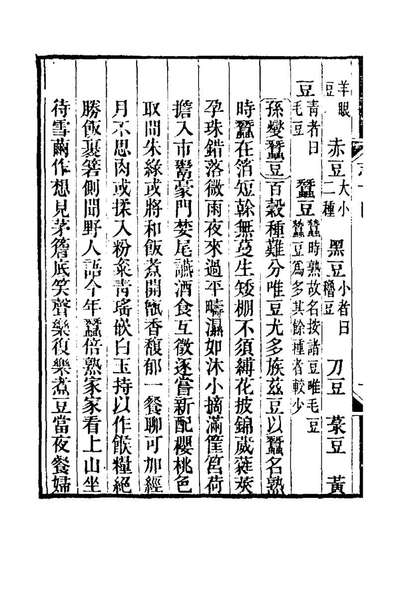 羊眼豆 赤豆大小二種 黑豆小者曰穭豆 刀豆 菉豆 黃
豆青者曰毛豆 蠶豆蠶時熟故名按諸豆唯毛豆蠶豆爲多其餘種者較少
孫燮蠶豆百穀種難分唯豆尤多族茲豆以蠶名熟
時蠶在箔短幹無蔓生矮棚不須縛花披錦葳蕤莢
孕珠錯落微雨夜來過平疇濕如沐小摘滿筐筥荷
擔入市鬻豪門婪尾讌酒食互徵逐嘗新配櫻桃色
取間朱綠或將和飯煮開甑香馥郁一餐聊可加經
月不思肉或揉入粉粢青瑤嵌白玉持以作餱糧絕
勝飯裹箬側聞野人語今年蠶倍熟家家看上山坐
待雪繭作想見茅簷底笑聲樂復樂煮豆當夜餐婦